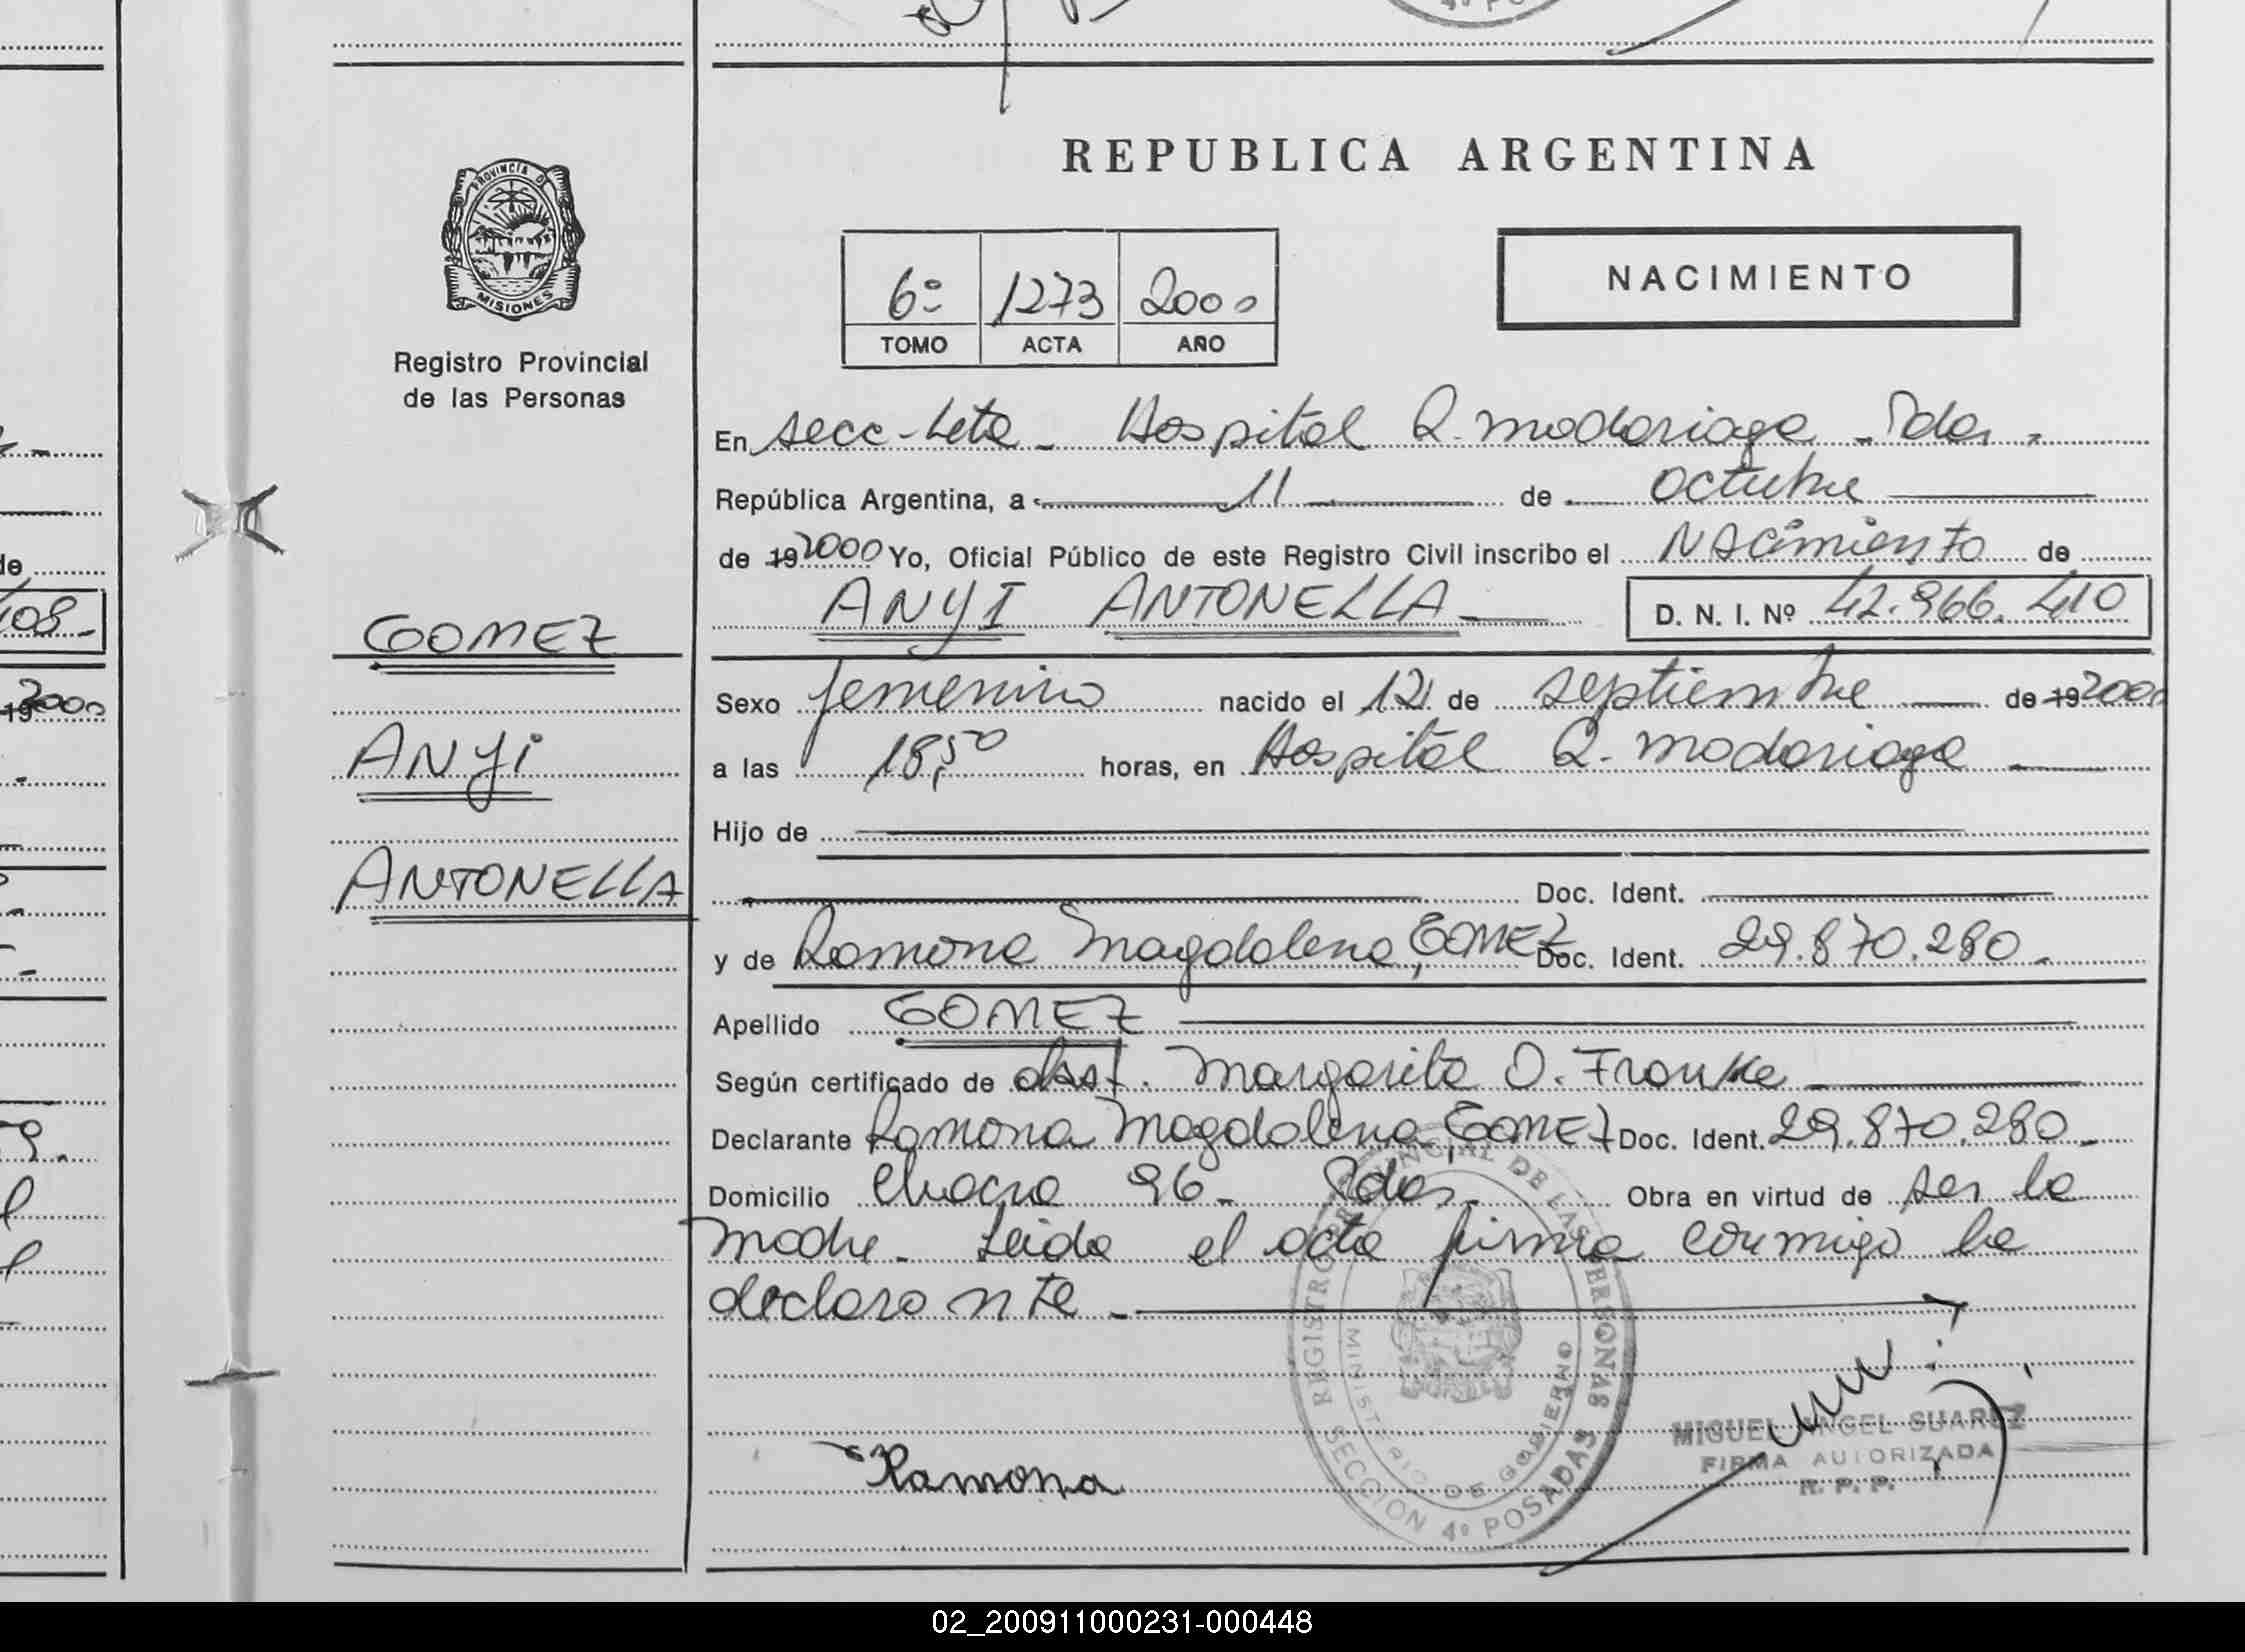 REPUBLICA ARGENTINA
PROVINCIA DE
MISIONES
Registro Provincial
de las Personas
6º 1273 2000
TOMO ACTA AÑO
NACIMIENTO
En secc-4ta - Hospital R. Madariaga - Pdas -
República Argentina, a 11 de octubre
de 19 2000 Yo, Oficial Público de este Registro Civil inscribo el Nacimiento de
ANYI ANTONELLA D. N. I. Nº 42.966.410
GOMEZ
Sexo femenino nacido el 12 de septiembre de 19 2000
ANYI
a las 18,50 horas, en Hospital R. Madariaga
Hijo de
ANTONELLA
Doc. Ident.
y de Ramona Magdalena, GOMEZ Doc. Ident. 29.870.280.
Apellido GOMEZ
Según certificado de obst. Margarita O. Franke
Declarante Ramona Magdalena, GOMEZ Doc. Ident. 29.870.280.
Domicilio Chacra 96 - Pdas. Obra en virtud de ser la
madre - Leida el acta firma conmigo la
declarante -
REGISTRO PROVINCIAL DE LAS PERSONAS
MINISTERIO DE GOBIERNO
SECCION 4º POSADAS
MIGUEL ANGEL SUAREZ
FIRMA AUTORIZADA
R. P. P.
Ramona
02_200911000231-000448